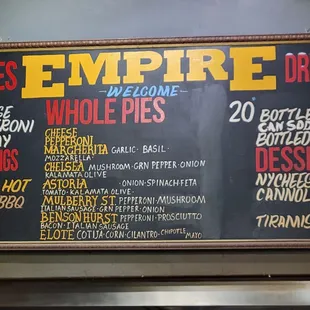 EMPIRE
WELCOME
WHOLE PIES
CHEESE
PEPPERONI
MARGHERITA GARLIC · BASIL ·
MOZZARELLA
CHELSEA MUSHROOM · GRN PEPPER · ONION
KALAMATA OLIVE
ASTORIA · ONION · SPINACH · FETA
TOMATO · KALAMATA OLIVE
MULBERRY ST. PEPPERONI · MUSHROOM
ITALIAN SAUSAGE · GRN PEPPER · ONION
BENSONHURST PEPPERONI · PROSCIUTTO
BACON · ITALIAN SAUSAGE
ELOTE COTIJA · CORN · CILANTRO · CHIPOTLE MAYO
HOT
BBQ
20"
DR
BOTTLE
CAN SOD
BOTTLED
DESS
NYCHEES
CANNOL
TIRAMIS